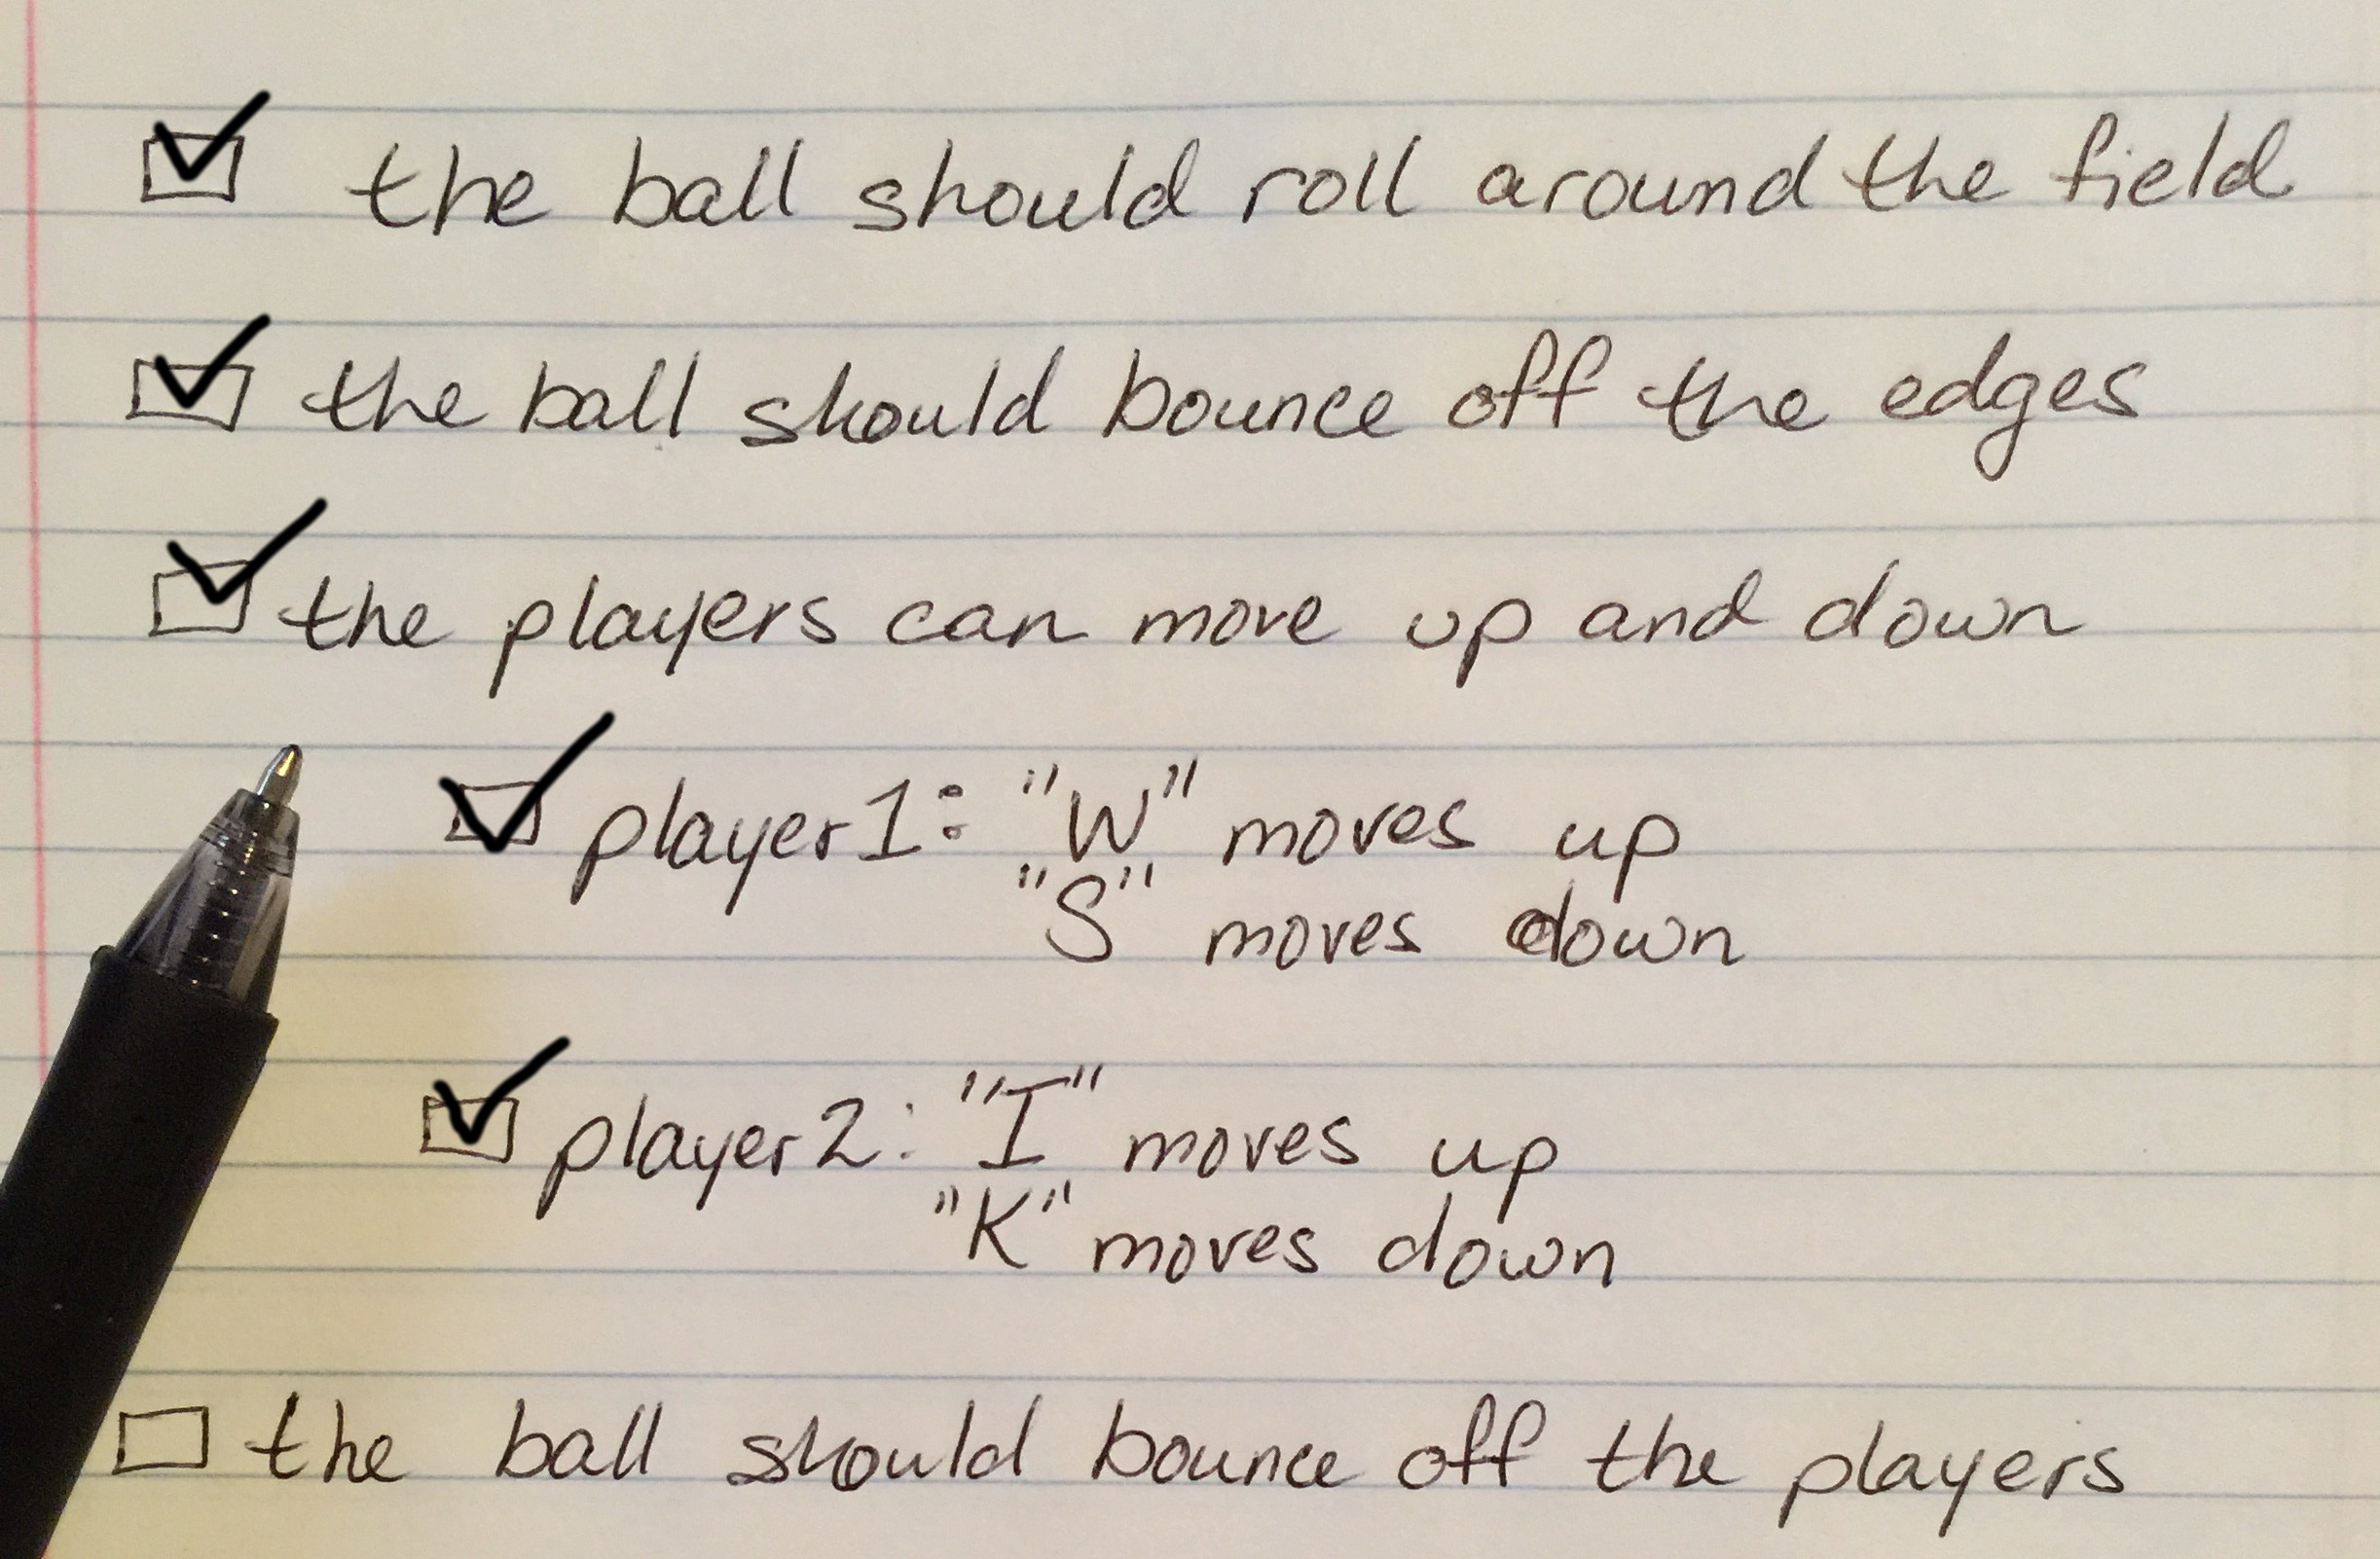 the ball should roll around the field
the ball should bounce off the edges
the players can move up and down
player1: "W" moves up
"S" moves down
player2: "I" moves up
"K" moves down
the ball should bounce off the players